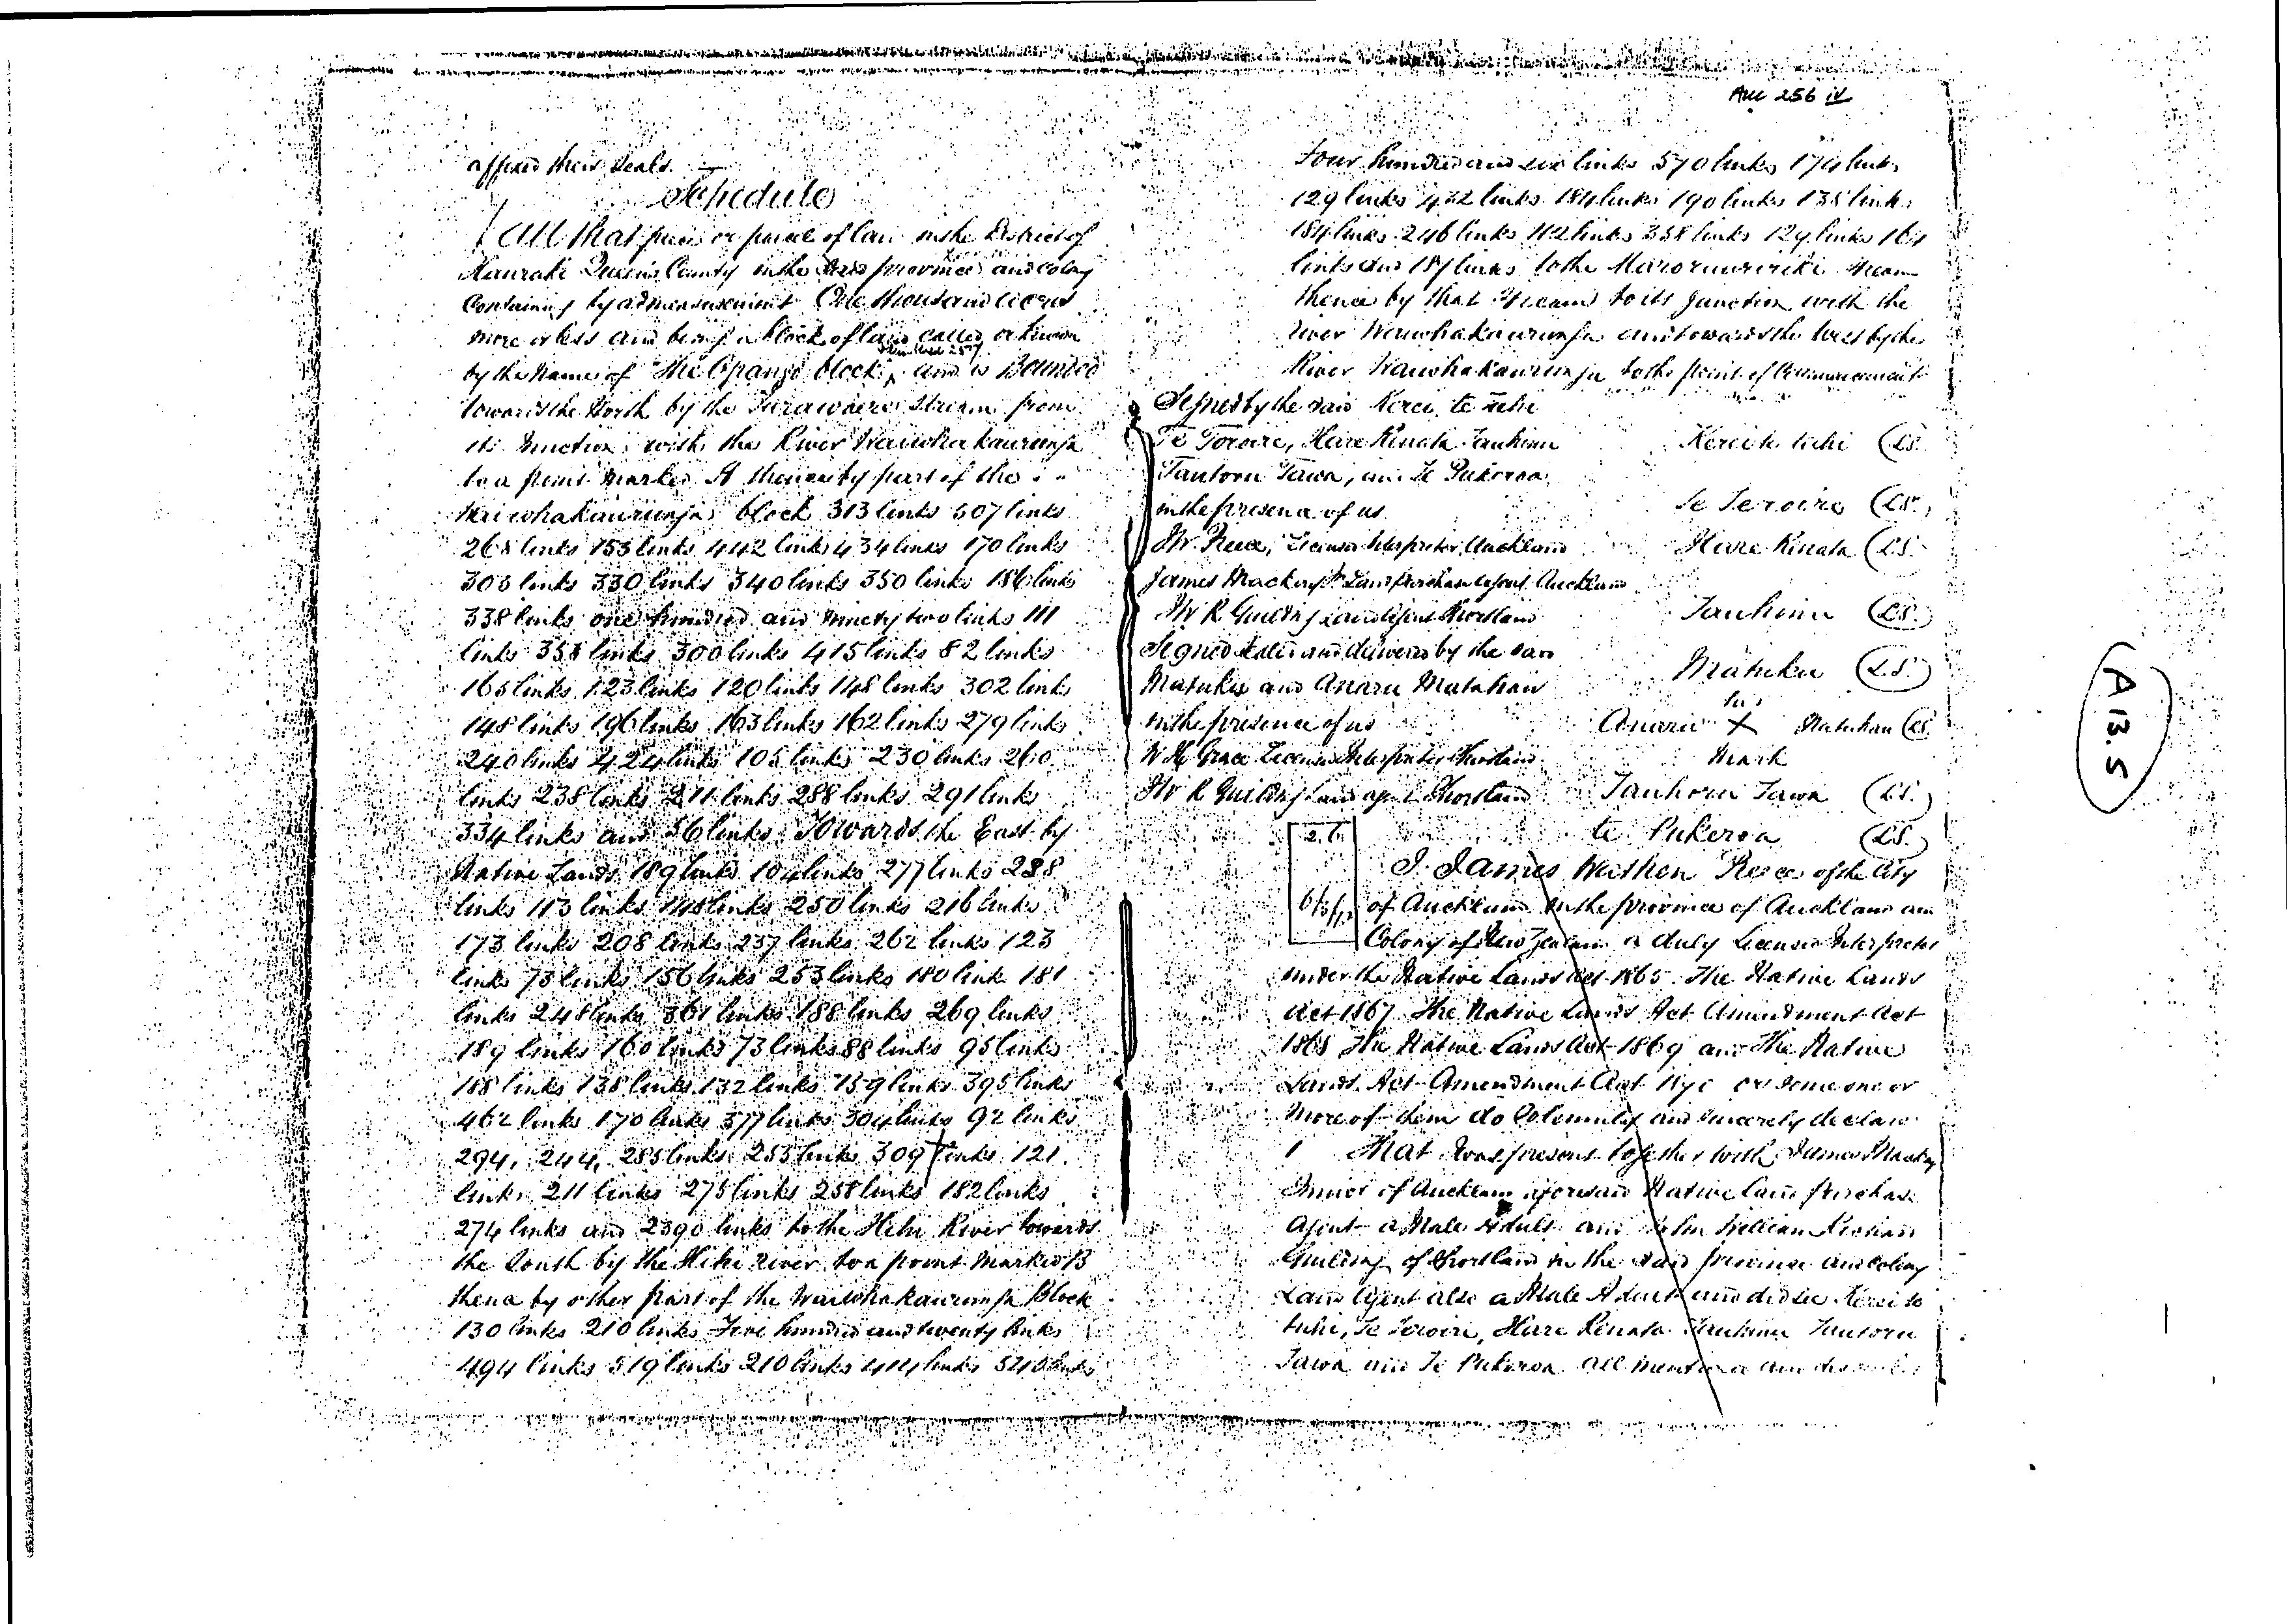 Auc 256 iv
affixed their seals
Schedule
All that piece or parcel of land in the District of
Hauraki Queen's County in the said province and colony
Containing by admeasurement One thousand acres
more or less and being a block of land called or known
by the Name of The Opango block and is Bounded
towards the North by the stream from
its junction with the River Waiwhakaurunga
to a point marked A thence by part of the
Waiwhakaurunga block 313 links 507 links
268 links 153 links 442 links 434 links 170 links
303 links 330 links 340 links 350 links 186 links
338 links one hundred and ninety two links 111
links 358 links 300 links 415 links 82 links
165 links 123 links 120 links 148 links 302 links
148 links 196 links 163 links 162 links 279 links
240 links 424 links 105 links 230 links 260
links 238 links 211 links 288 links 291 links
334 links and 56 links Towards the East by
Native Lands 189 links 104 links 277 links 288
links 113 links 148 links 250 links 216 links
173 links 208 links 237 links 262 links 123
links 73 links 156 links 253 links 180 link 181
links 248 links 361 links 188 links 269 links
189 links 160 links 73 links 88 links 95 links
188 links 138 links 132 links 159 links 395 links
462 links 170 links 377 links 304 links 92 links
294, 244, 285 links 253 links 309 links 121
links 211 links 275 links 258 links 182 links
274 links and 2390 links to the Hihi River towards
the South by the Hihi River to a point marked B
thence by other part of the Waiwhakaurunga Block
130 links 210 links Five hundred and twenty links
494 links 519 links 210 links 414 links 540 links
four hundred and six links 570 links 174 links
129 links 432 links 184 links 190 links 138 links
184 links 246 links 112 links 358 links 129 links 164
links and 187 links to the stream
thence by that stream to its junction with the
river Waiwhakaurunga and towards the West by the
River Waiwhakaurunga to the point of Commencement
Signed by the said Kerei te tuhi
Te Teroire, Hare Renata Tauhinu
Tauhoru Tawa, and Te Pukeroa
in the presence of us
Kerei te tuhi (LS.)
Te Teroire (LS.)
JW Reece, Licensed Interpreter Auckland
Hare Renata (LS.)
James Mackay Jr Land Purchase Agent Auckland
JW R Guilding Land Agent Shortland
Tauhinu (LS.)
Signed Sealed and delivered by the said
Matuku and Anaru Matahau
in the presence of us
Matuku (LS.)
his
Anaru X Matahau (LS.)
mark
W H Grace Licensed Interpreter Shortland
JW R Guilding Land agent Shortland
Tauhoru Tawa (LS.)
te Pukeroa (LS.)
I James Wathen Reece of the City
of Auckland in the province of Auckland and
Colony of New Zealand a duly Licensed Interpreter
under the Native Lands Act 1865 The Native Lands
Act 1867 The Native Lands Act Amendment Act
1868 The Native Lands Act 1869 and The Native
Lands Act Amendment Act 1870 or some one or
more of them do Solemnly and sincerely declare
1 That I was present together with James Mackay
Junior of Auckland aforesaid Native Land Purchase
Agent a Male Adult and John William Richard
Guilding of Shortland in the said province and Colony
Land Agent also a Male Adult and did see Kerei te
tuhi, Te Teroire, Hare Renata Tauhinu Tauhoru
Tawa and Te Pukeroa all mentioned and
A13.5